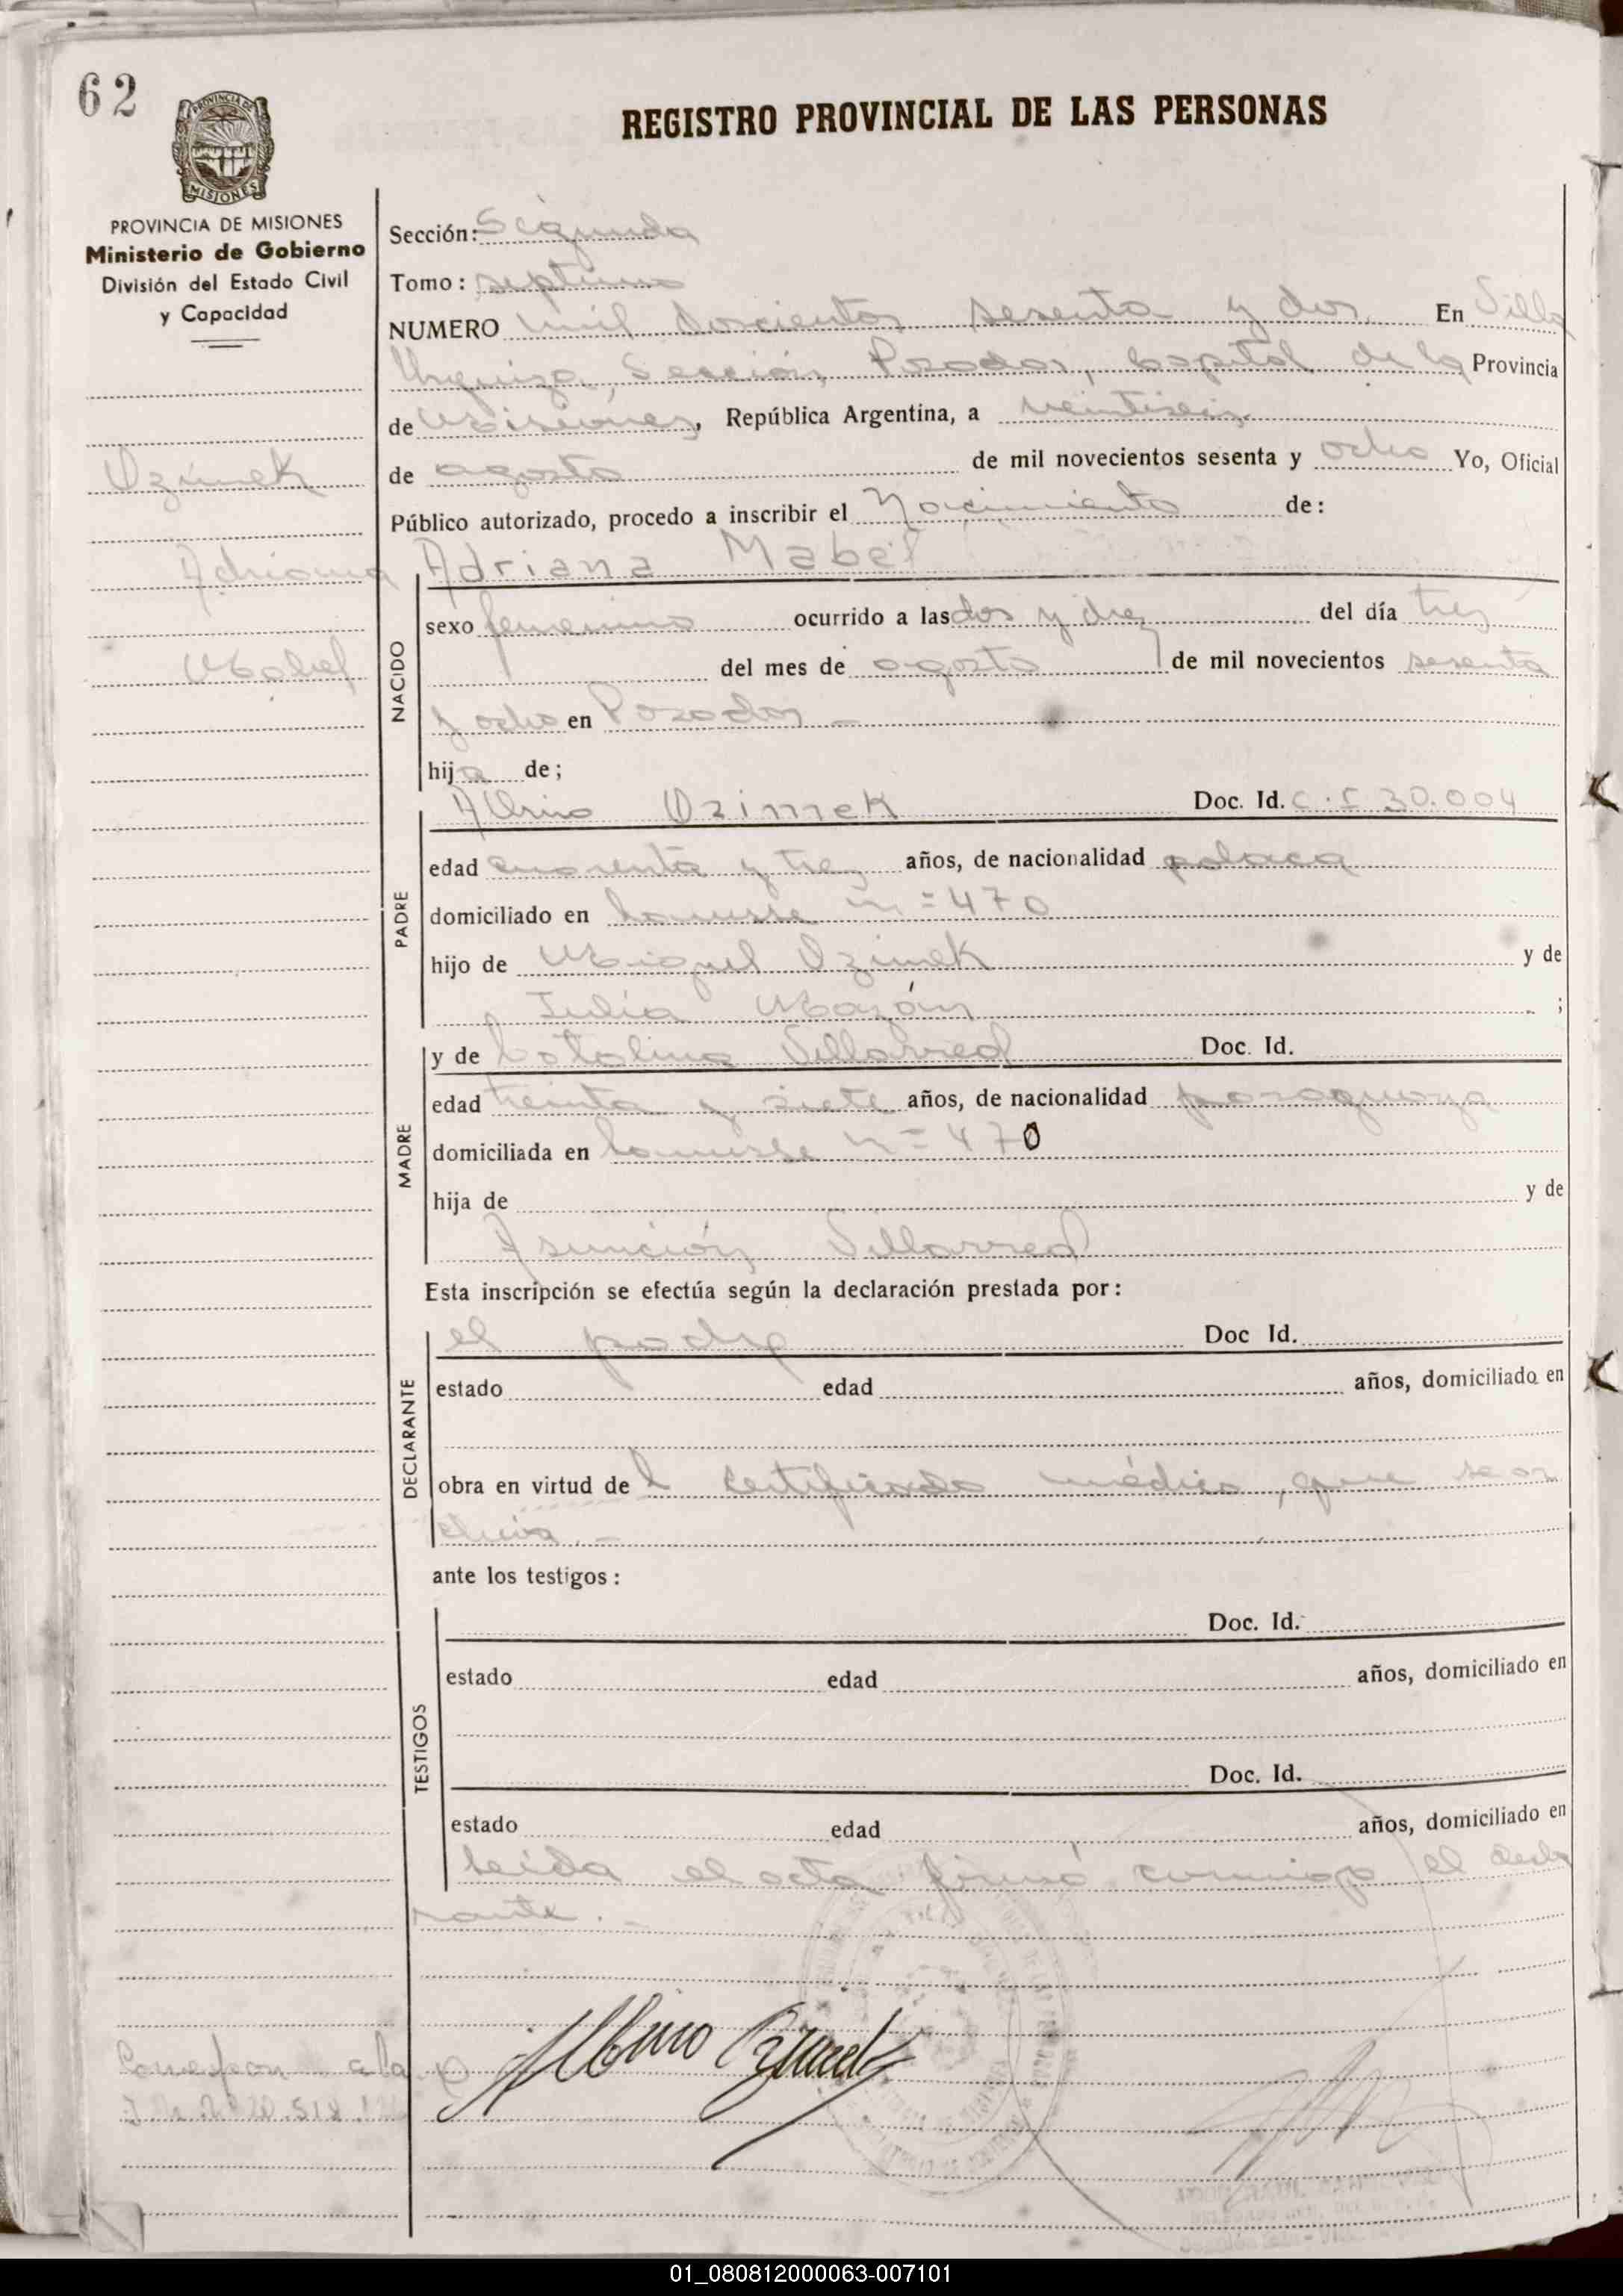 62
REGISTRO PROVINCIAL DE LAS PERSONAS
PROVINCIA DE MISIONES
PROVINCIA DE MISIONES
Ministerio de Gobierno
División del Estado Civil
y Capacidad
Ozimek
Adriana
Mabel
Sección: Segunda
Tomo: septimo
NUMERO mil doscientos sesenta y dos En Villa
Urquiza, Sección Posadas, Capital de la Provincia
de Misiones, República Argentina, a veintiseis
de agosto de mil novecientos sesenta y ocho Yo, Oficial
Público autorizado, procedo a inscribir el Nacimiento de:
Adriana Mabel
NACIDO
sexo femenino ocurrido a las dos y diez del día tres
del mes de agosto de mil novecientos sesenta
y ocho en Posadas -
hija de;
PADRE
Albino Ozimek Doc. Id. C.I 30.004
edad cuarenta y tres años, de nacionalidad polaca
domiciliado en Lanusse n=470
hijo de Miguel Ozimek y de
Julia Mazán ;
MADRE
y de Catalina Villarreal Doc. Id.
edad treinta y siete años, de nacionalidad paraguaya
domiciliada en Lanusse n=470
hija de y de
Asunción Villarreal
Esta inscripción se efectúa según la declaración prestada por:
DECLARANTE
el padre Doc Id.
estado edad años, domiciliado en
obra en virtud del certificado médico, que se ar
chiva.-
ante los testigos:
TESTIGOS
Doc. Id.
estado edad años, domiciliado en
Doc. Id.
estado edad años, domiciliado en
leída el acta firmó conmigo el decla
rante.-
Albino Ozimek
a la
20.518.
01_080812000063-007101